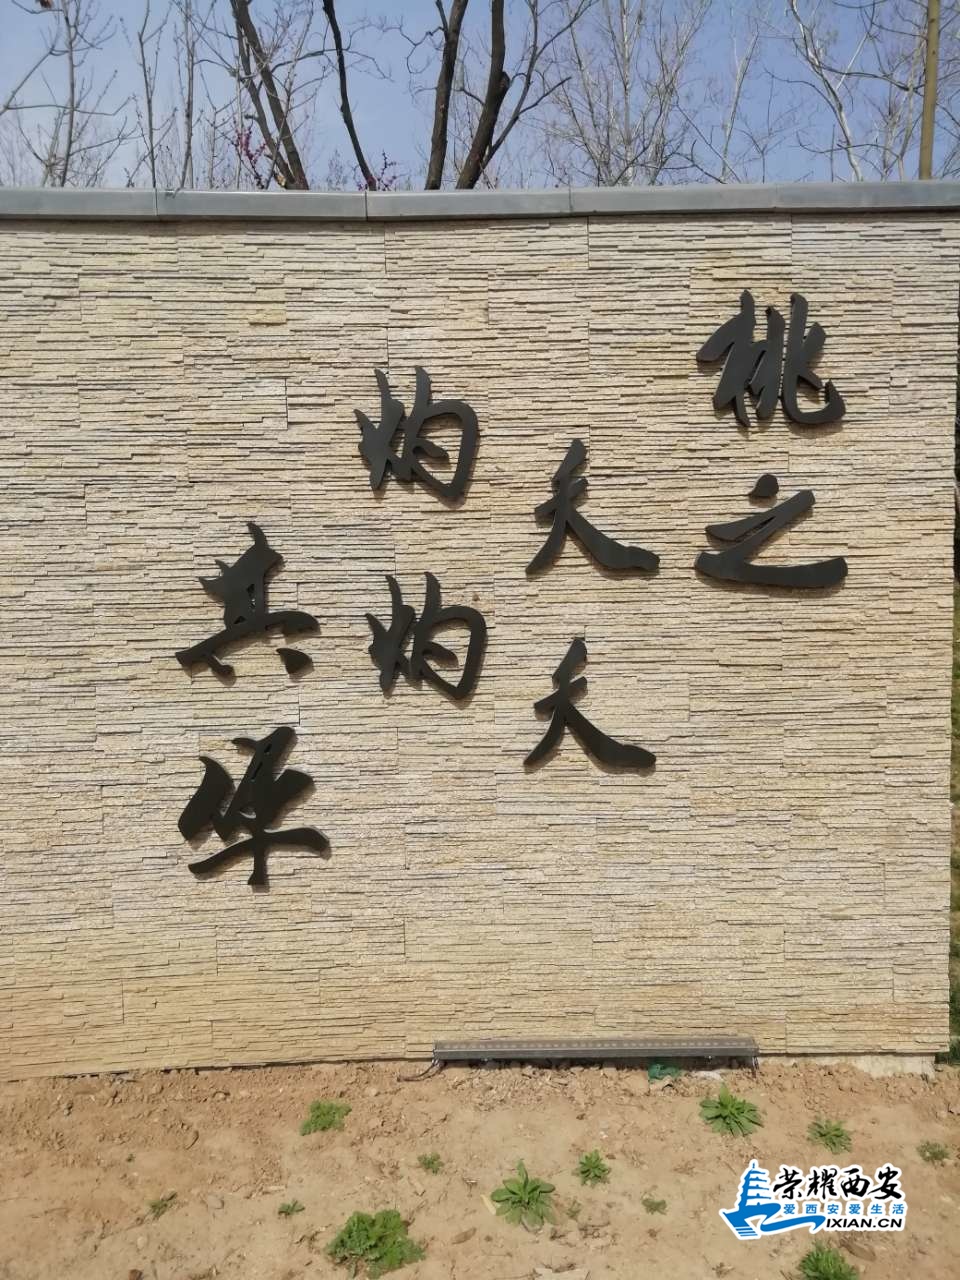 桃之
夭夭
灼灼
其华
荣耀西安
爱西安爱生活
IXIAN.CN